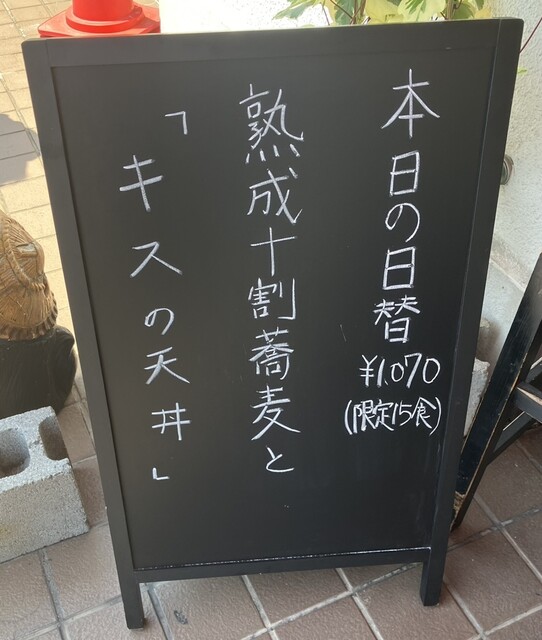 本日の日替
¥1,070
(限定15食)
熟成十割蕎麦と
「キスの天井」